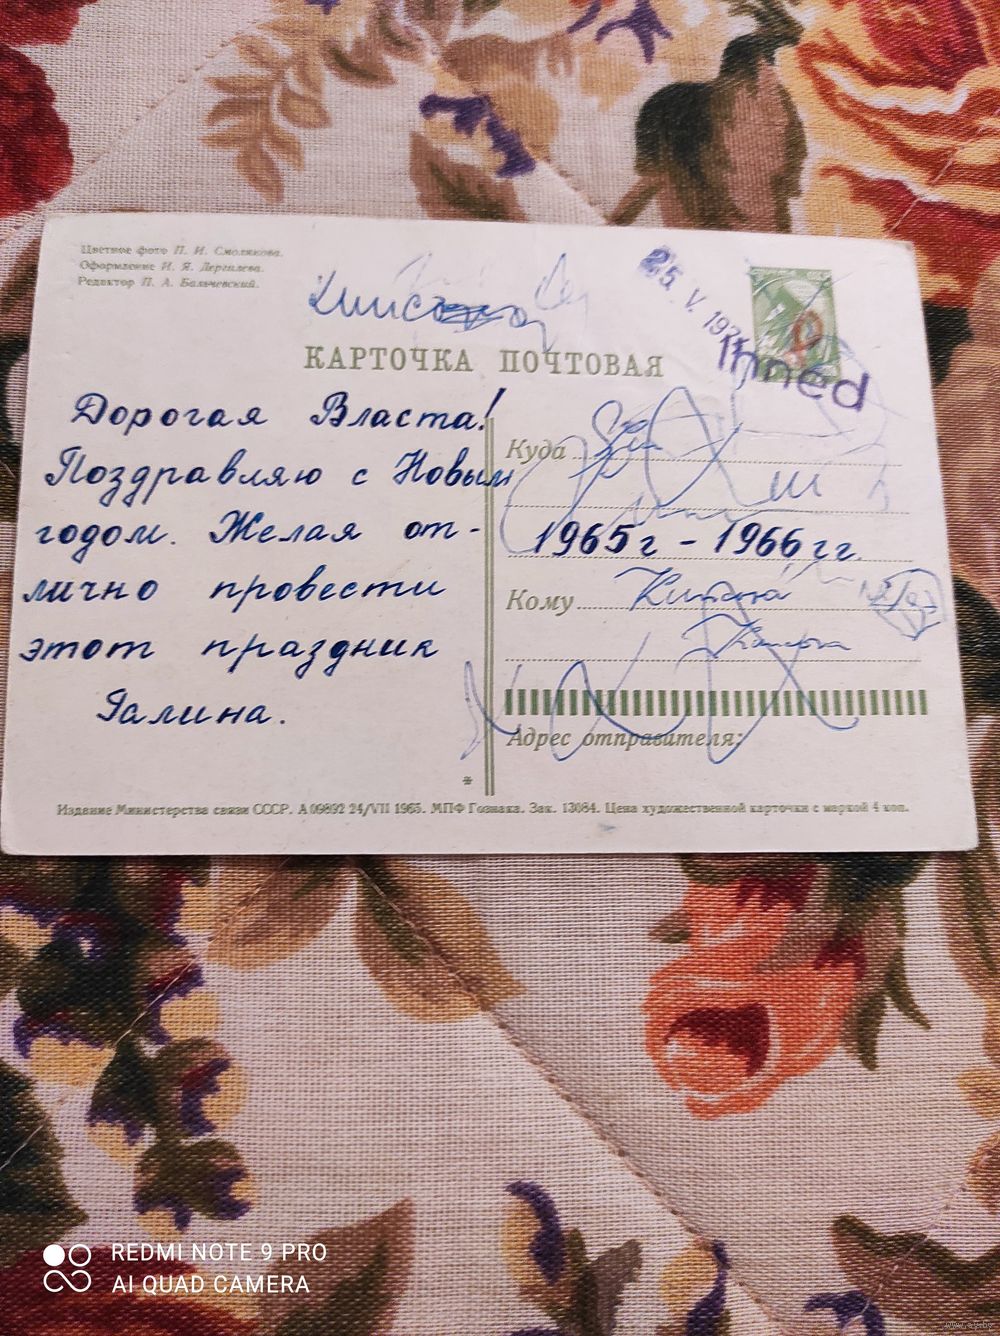 Цветное фото П. И. Смолякова.
Оформление И. Я. Дергилева.
Редактор П. А. Бальчевский.
25. V. 197
Ihned
КАРТОЧКА ПОЧТОВАЯ
Дорогая Власта!
Поздравляю с Новым
годом. Желая от-
лично провести
этот праздник
Галина.
Куда
1965г - 1966 гг.
Кому
Адрес отправителя:
*
Издание Министерства связи СССР. А 09892 24/VII 1965. МПФ Гознака. Зак. 13084. Цена художественной карточки с маркой 4 коп.
REDMI NOTE 9 PRO
AI QUAD CAMERA